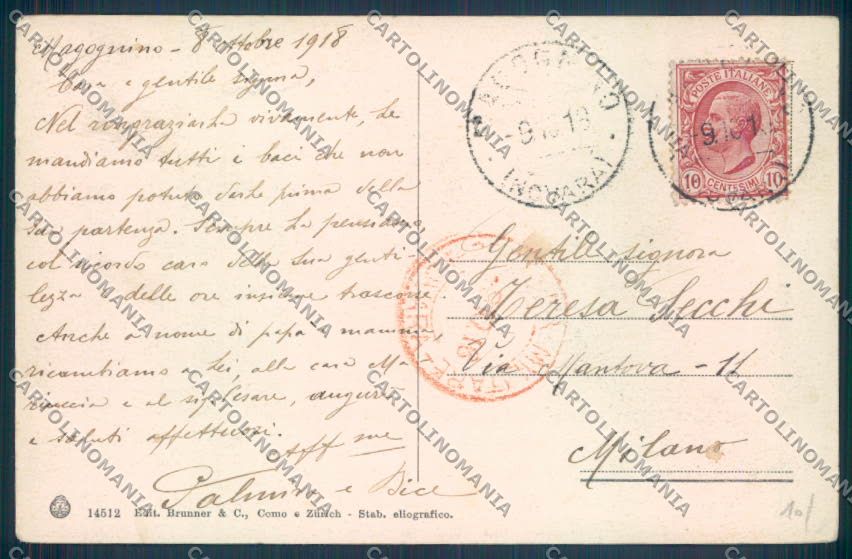 Magognino - 8 ottobre 1918
Cara e gentile signora,
Nel ringraziarla vivamente, Le
mandiamo tutti i baci che non
abbiamo potuto darle prima della
Sua partenza. Sempre La pensiamo
col ricordo caro della Sua genti-
lezza e delle ore insieme trascorse.
Anche a nome di papà e mamma,
ricambiamo a Lei, alla cara Ma-
riuccia e al sig. Cesare, auguri
e saluti affettuosi.
Aff me
Palmira e Bice
14512 Edit. Brunner & C., Como e Zürich - Stab. eliografico.
(NOVARA)
-9.10.18
POSTE ITALIANE
-9.10.1
10 CENTESIMI 10
Gentile signora
Teresa Secchi
Via Mantova - 11
Milano
CARTOLINOMANIA